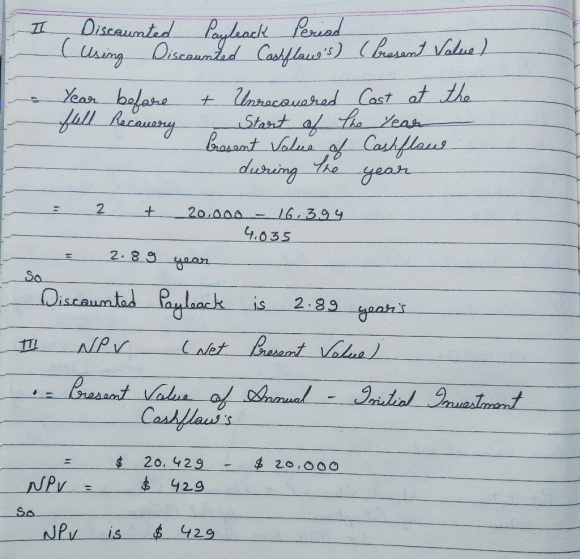 II Discounted Payback Period
(Using Discounted Cashflow's) (Present Value)
= Year before + Unrecovered Cost at the
full Recovery Start of the Year
Present Value of Cashflow
during the year
= 2 + 20.000 - 16.394
4.035
= 2.89 year
So
Discounted Payback is 2.89 year's
III NPV (Net Present Value)
= Present Value of Annual - Initial Investment
Cashflow's
= $ 20.429 - $ 20.000
NPV = $ 429
So
NPV is $ 429